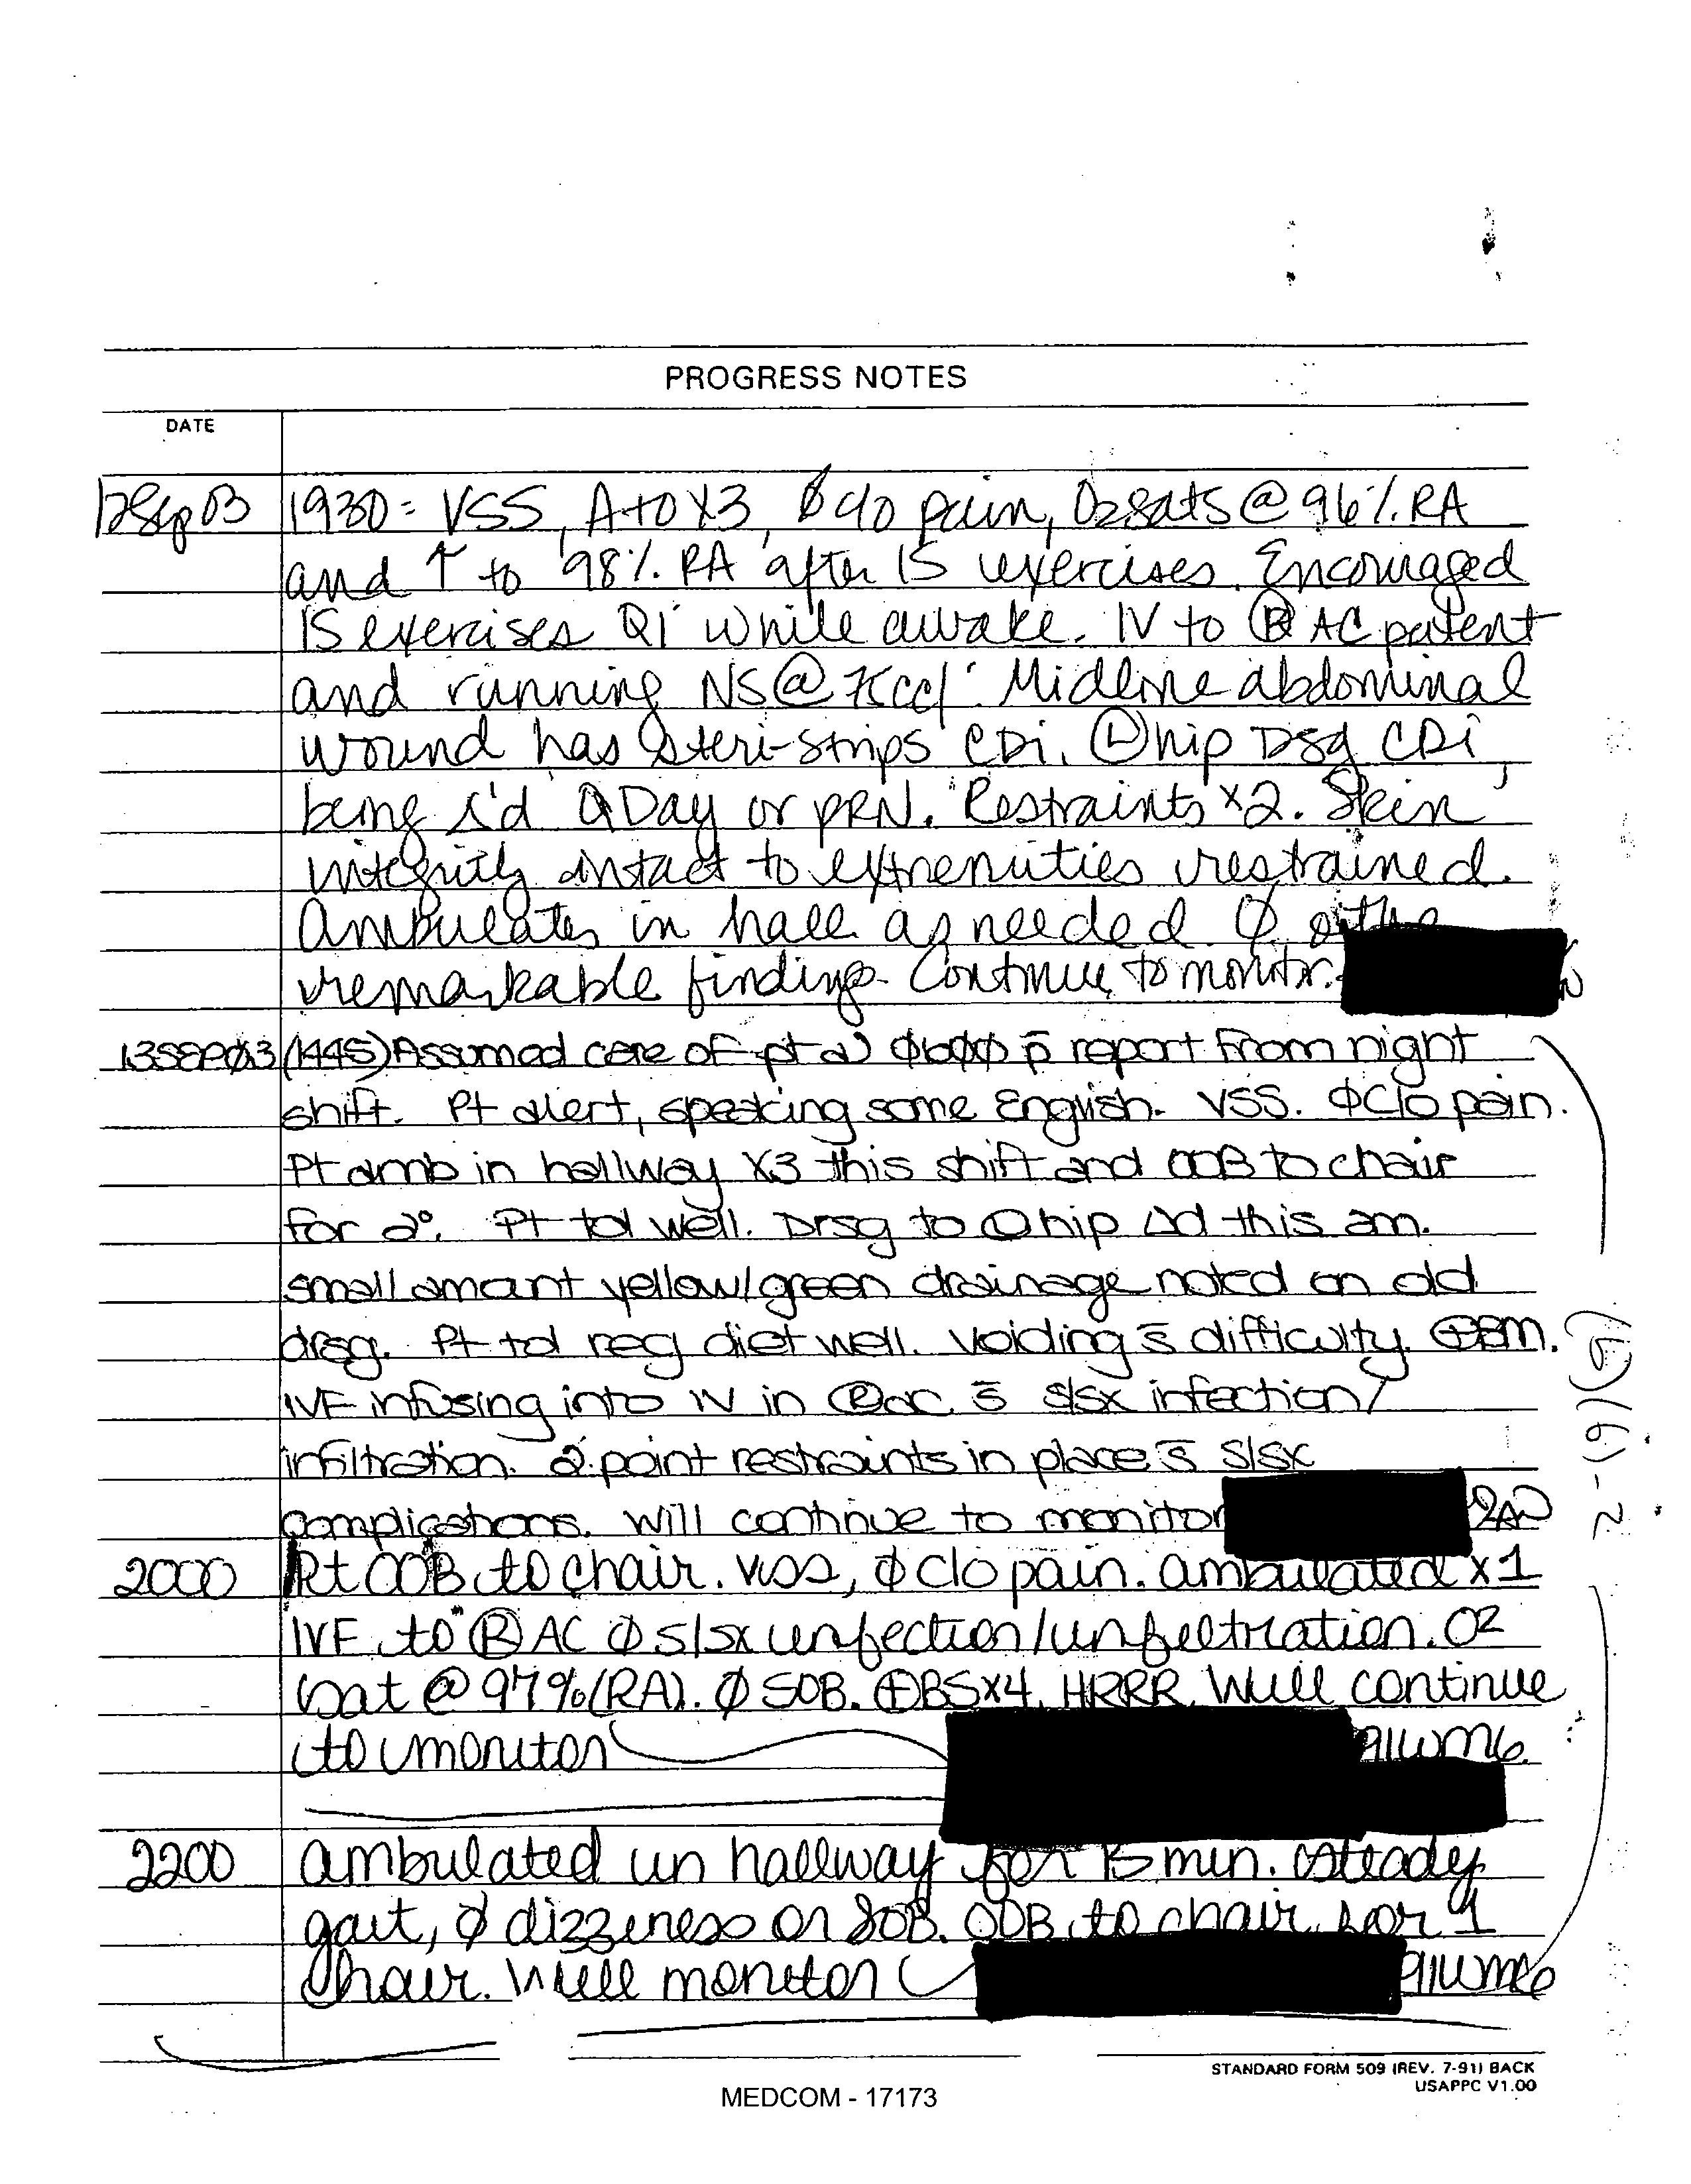 PROGRESS NOTES
DATE
12Sep03 1930: VSS, A+OX3, Ø c/o pain, O2sats @ 96% RA
and ↑ to 98% RA after IS exercises. Encouraged
IS exercises Q1° while awake. IV to Ⓡ AC patent
and running NS @ 75cc/°. Midline abdominal
wound has steri-strips CDI. Ⓛ hip Dsg CDI,
being Δ'd QDay or PRN. Restraints x2. Skin
integrity intact to extremities restrained.
Ambulates in hall as needed. Ø othe
remarkable findings. Continue to monitor.
13SEP03 (1445) Assumed care of pt @ 0600 p̄ report from night
shift. Pt alert, speaking some English. VSS. Ø C/o pain.
Pt amb in hallway X3 this shift and OOB to chair
for 2°. Pt tol well. Drsg to Ⓛ hip Δd this am.
small amount yellow/green drainage noted on old
drsg. Pt tol reg diet well. Voiding s̄ difficulty. ⊕BM.
IVF infusing into IV in Ⓡ ac s̄ s/sx infection/
infiltration. 2 point restraints in place s̄ s/sx
complications. Will continue to monitor
2000 Pt OOB to chair. VSS, Ø c/o pain. ambulated x1
IVF to Ⓡ AC Ø s/sx infection/infiltration. O2
sat @ 97% (RA). Ø SOB. ⊕BSx4. HRRR. Will continue
to monitor 91WM6
2200 ambulated in hallway for 15 min. steady
gait, Ø dizziness or SOB. OOB to chair for 1
chair. Will monitor 91WM6
(b)(6)-2
STANDARD FORM 509 (REV. 7-91) BACK
USAPPC V1.00
MEDCOM - 17173